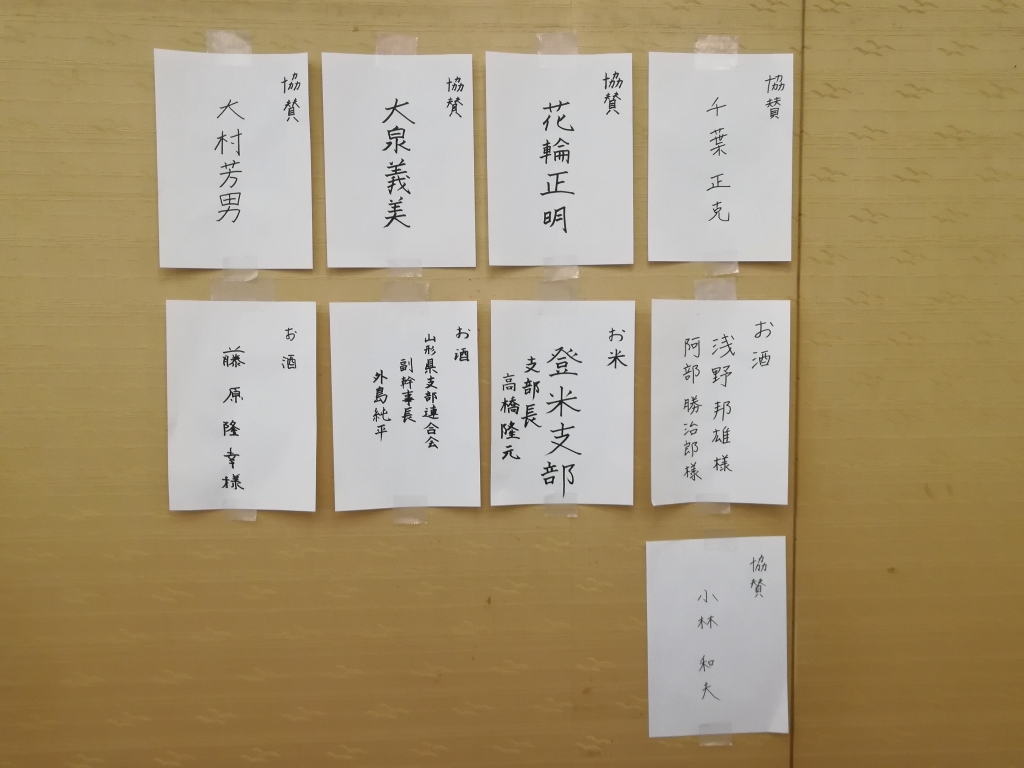 協賛
千葉正克
協賛
花輪正明
協賛
大泉義美
協賛
大村芳男
お酒
浅野邦雄様
阿部勝治郎様
お米
登米支部
支部長
高橋隆元
お酒
山形県支部連合会
副幹事長
外島純平
お酒
藤原隆幸様
協賛
小林和夫